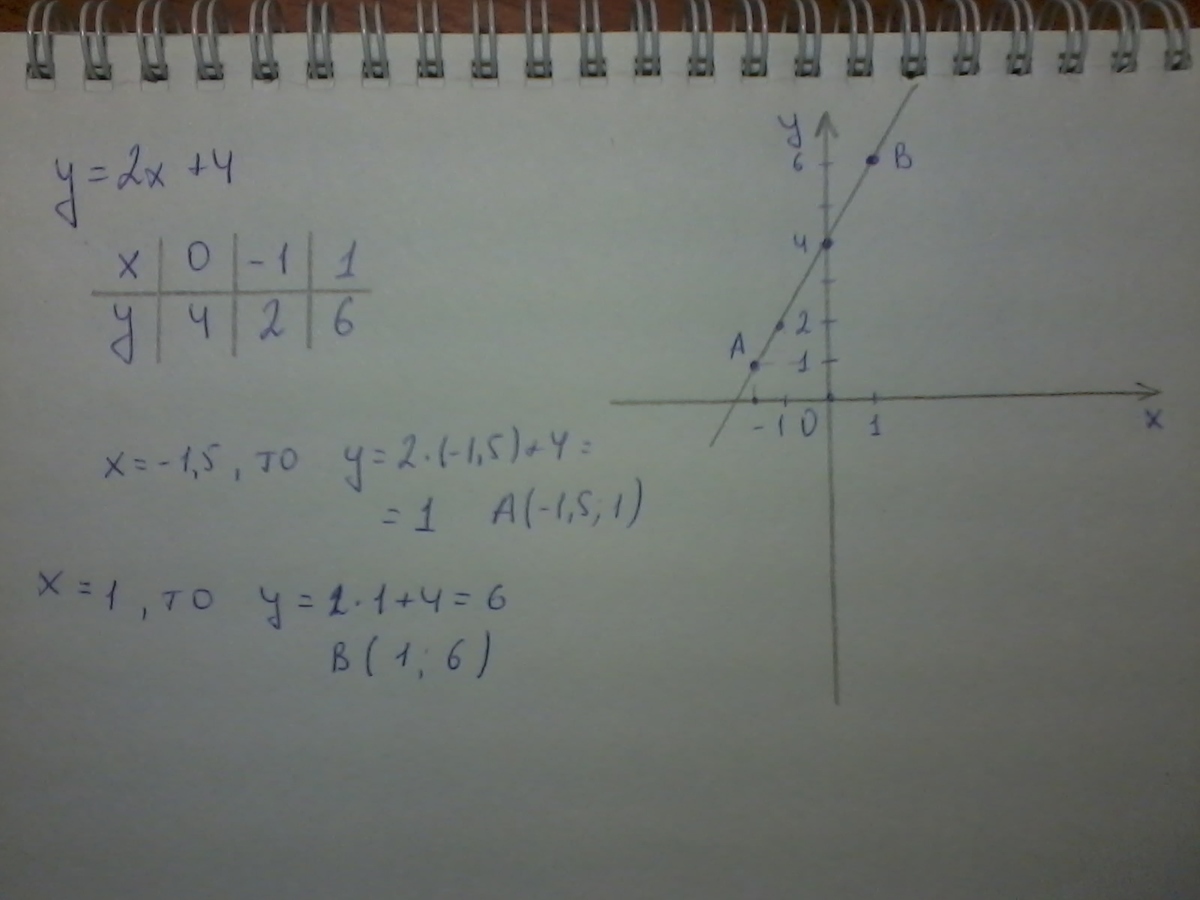 y = 2x + 4
x | 0 | -1 | 1
y | 4 | 2 | 6
x = -1,5, то y = 2·(-1,5)+4 =
= 1 A(-1,5; 1)
x = 1, то y = 2·1+4 = 6
B(1; 6)
y
6 B
4
2
A 1
-1 0 1 x